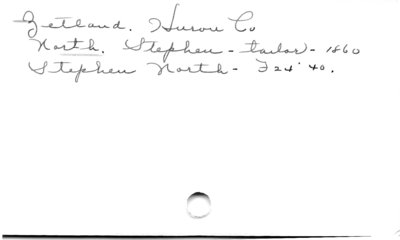 Zetland. Huron Co
North. Stephen - tailor - 1860
Stephen North - F 24 40.